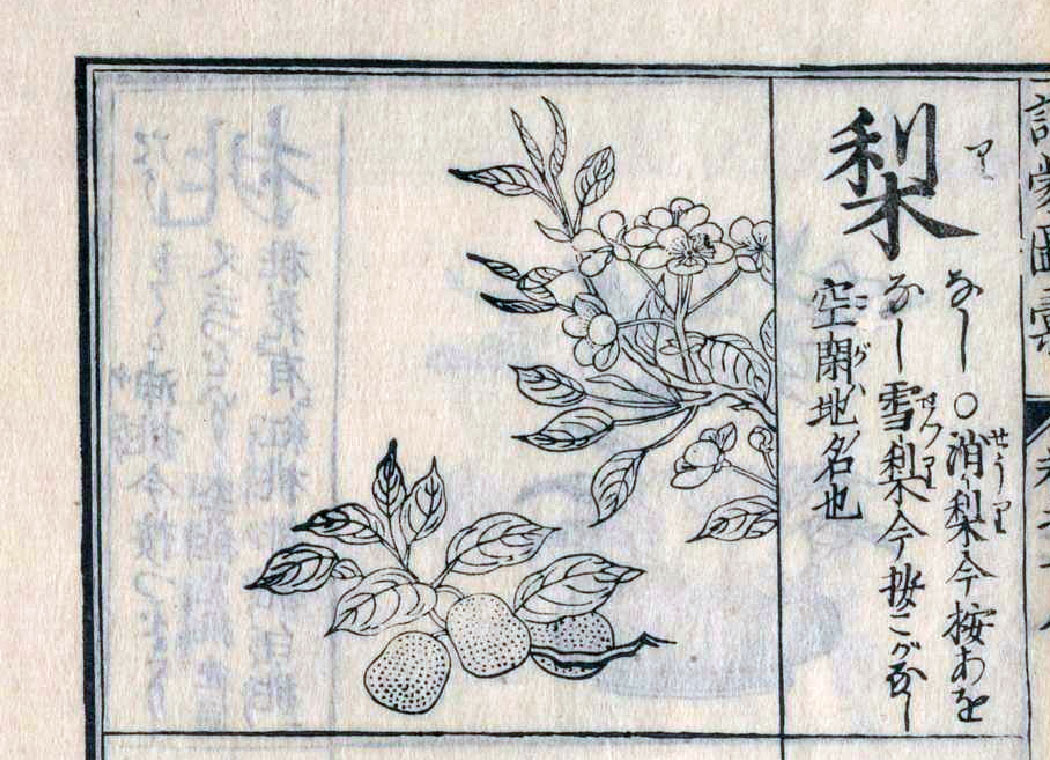 訓蒙圖彙
梨
り
なし○消梨今按あを
せうり
なし雪梨今按こがなし
せつり
空閑ハ地ノ名也
こが